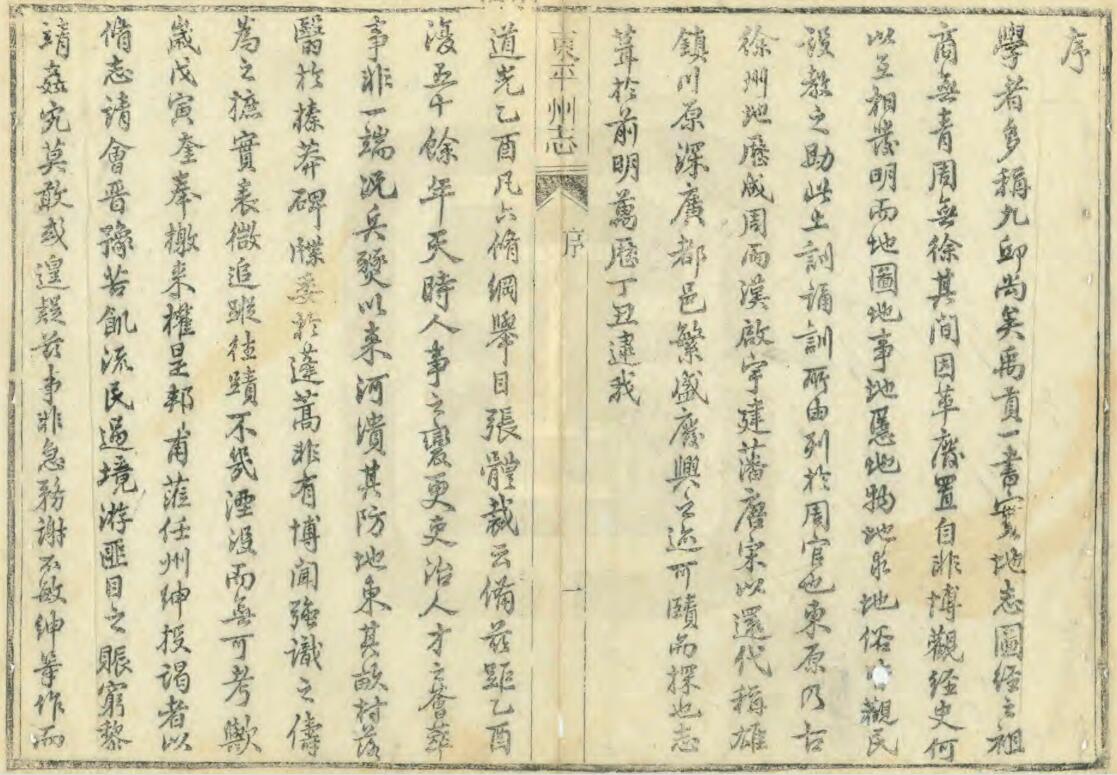 序
學者多稱九邱尚矣禹貢一書實地志圖經之祖
商無青周無徐其間因革廢置自非博觀經史何
以互相發明而地圖地事地慝地物地求地俗觀民
設教之助此土訓誦訓所由列於周官也東原乃古
徐州地歷成周兩漢啟宇建藩唐宋以還代稱雄
鎮川原深廣都邑繁盛廢興之迹可賾而探也志
葺於前明萬歷丁丑逮我
東平州志
序
一
道光乙酉凡六脩綱舉目張體裁云備茲距乙酉
復五十餘年天時人事之變更吏治人才之薈萃
事非一端況兵燹以來河潰其防地東其畝村落
翳於榛莽碑牒委於蓬蒿非有博聞強識之儔
為之摭實表微追蹤往蹟不幾湮沒而無可考歟
歲戊寅奎奉檄來權是邦甫蒞任州紳授謁者以
脩志請會晋豫苦飢流民過境游匪目之賑窮黎
靖姦宄莫敢或遑疑茲事非急務謝不敏紳等作而